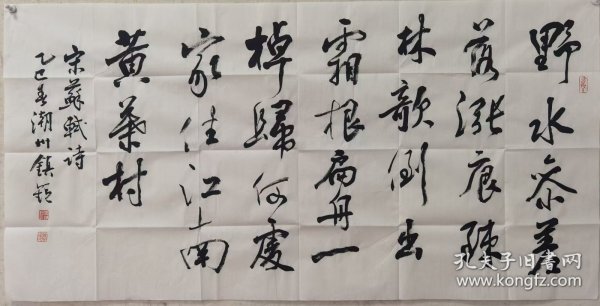 野水參差
落漲痕疎
林欹倒出
霜根扁舟一
棹歸何處
家住江南
黃葉村
宋蘇軾诗
乙巳春潮州鎮
孔夫子旧书网
www.kongfz.com